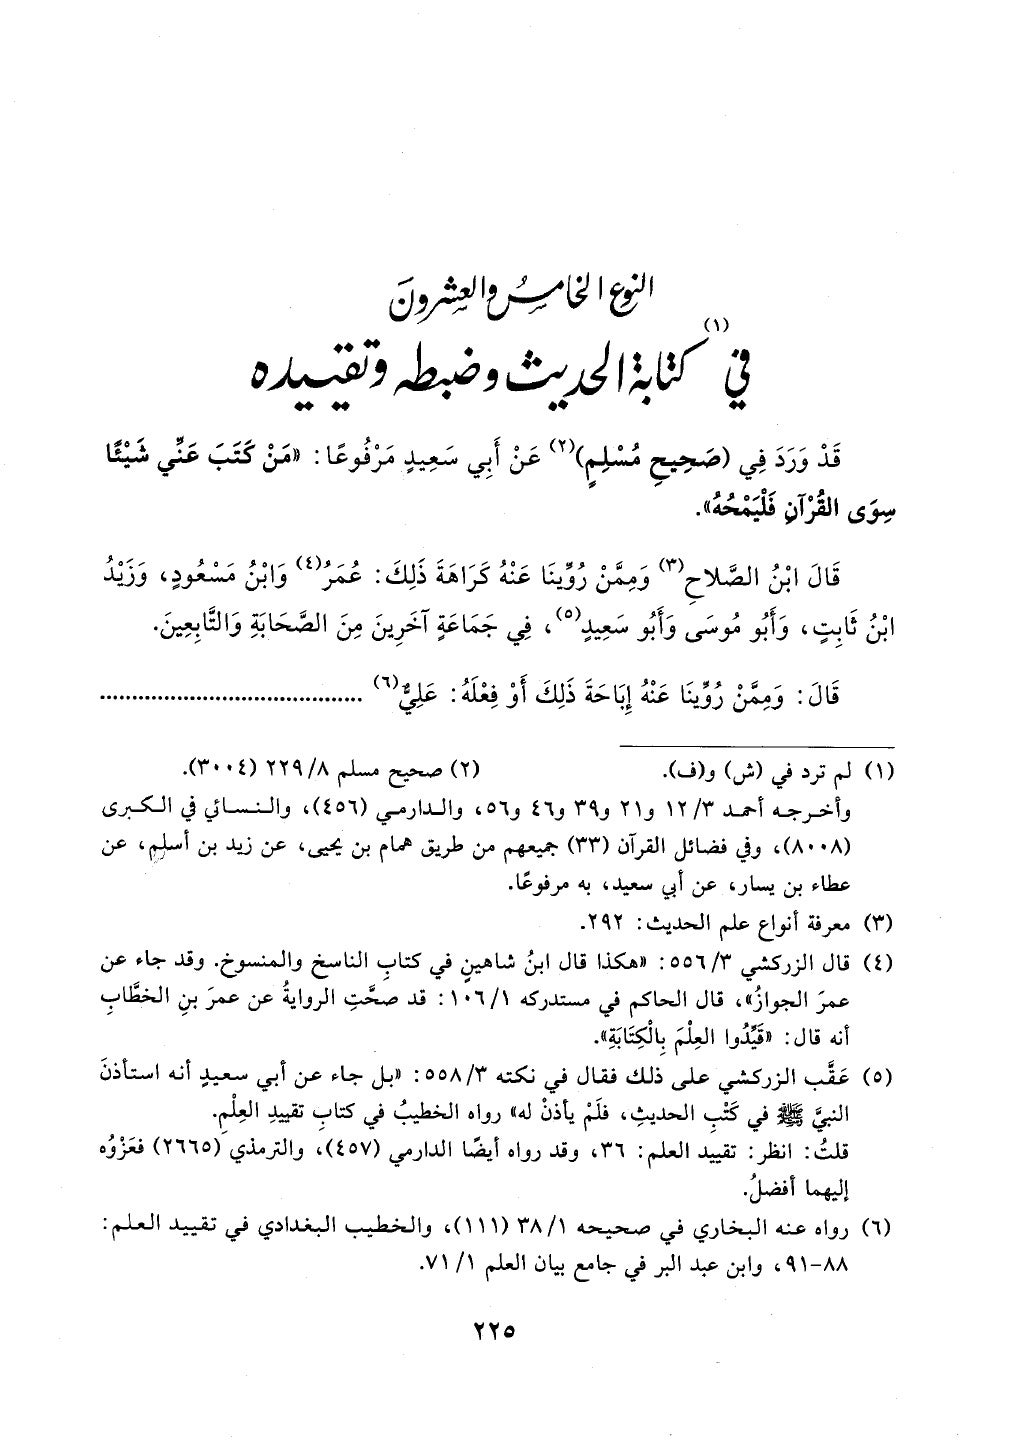 النوع الخامس والعشرون
في(١) كتابة الحديث وضبطه وتقييده
قَدْ وَرَدَ فِي (صَحِيحِ مُسْلِمٍ)(٢) عَنْ أَبِي سَعِيدٍ مَرْفُوعًا: «مَنْ كَتَبَ عَنِّي شَيْئًا
سِوَى القُرْآنِ فَلْيَمْحُهُ».
قَالَ ابْنُ الصَّلاحِ(٣) وَمِمَّنْ رُوِّينَا عَنْهُ كَرَاهَةَ ذَلِكَ: عُمَرُ(٤) وَابْنُ مَسْعُودٍ، وَزَيْدُ
ابْنُ ثَابِتٍ، وَأَبُو مُوسَى وَأَبُو سَعِيدٍ(٥)، فِي جَمَاعَةٍ آخَرِينَ مِنَ الصَّحَابَةِ وَالتَّابِعِينَ.
قَالَ: وَمِمَّنْ رُوِّينَا عَنْهُ إِبَاحَةَ ذَلِكَ أَوْ فِعْلَهُ: عَلِيٌّ(٦) ........................................
(١) لم ترد في (ش) و(ف). (٢) صحيح مسلم ٨/ ٢٢٩ (٣٠٠٤).
وأخرجه أحمد ٣/ ١٢ و٢١ و٣٩ و٤٦ و٥٦، والدارمي (٤٥٦)، والنسائي في الكبرى
(٨٠٠٨)، وفي فضائل القرآن (٣٣) جميعهم من طريق همام بن يحيى، عن زيد بن أسلم، عن
عطاء بن يسار، عن أبي سعيد، به مرفوعًا.
(٣) معرفة أنواع علم الحديث: ٢٩٢.
(٤) قال الزركشي ٣/ ٥٥٦: «هكذا قال ابنُ شاهينٍ في كتابِ الناسخ والمنسوخ. وقد جاء عن
عمرَ الجوازُ»، قال الحاكم في مستدركه ١/ ١٠٦: قد صحَّتِ الروايةُ عن عمرَ بنِ الخطَّابِ
أنه قال: «قَيِّدُوا العِلْمَ بِالْكِتَابَةِ».
(٥) عَقَّب الزركشي على ذلك فقال في نكته ٣/ ٥٥٨: «بل جاء عن أبي سعيدٍ أنه استأذنَ
النبيَّ ﷺ في كَتْبِ الحديثِ، فلَمْ يأذنْ له» رواه الخطيبُ في كتابِ تقييدِ العِلْمِ.
قلتُ: انظر: تقييد العلم: ٣٦، وقد رواه أيضًا الدارمي (٤٥٧)، والترمذي (٢٦٦٥) فعَزْوُه
إليهما أفضلُ.
(٦) رواه عنه البخاري في صحيحه ١/ ٣٨ (١١١)، والخطيب البغدادي في تقييد العلم:
٨٨-٩١، وابن عبد البر في جامع بيان العلم ١/ ٧١.
٢٢٥